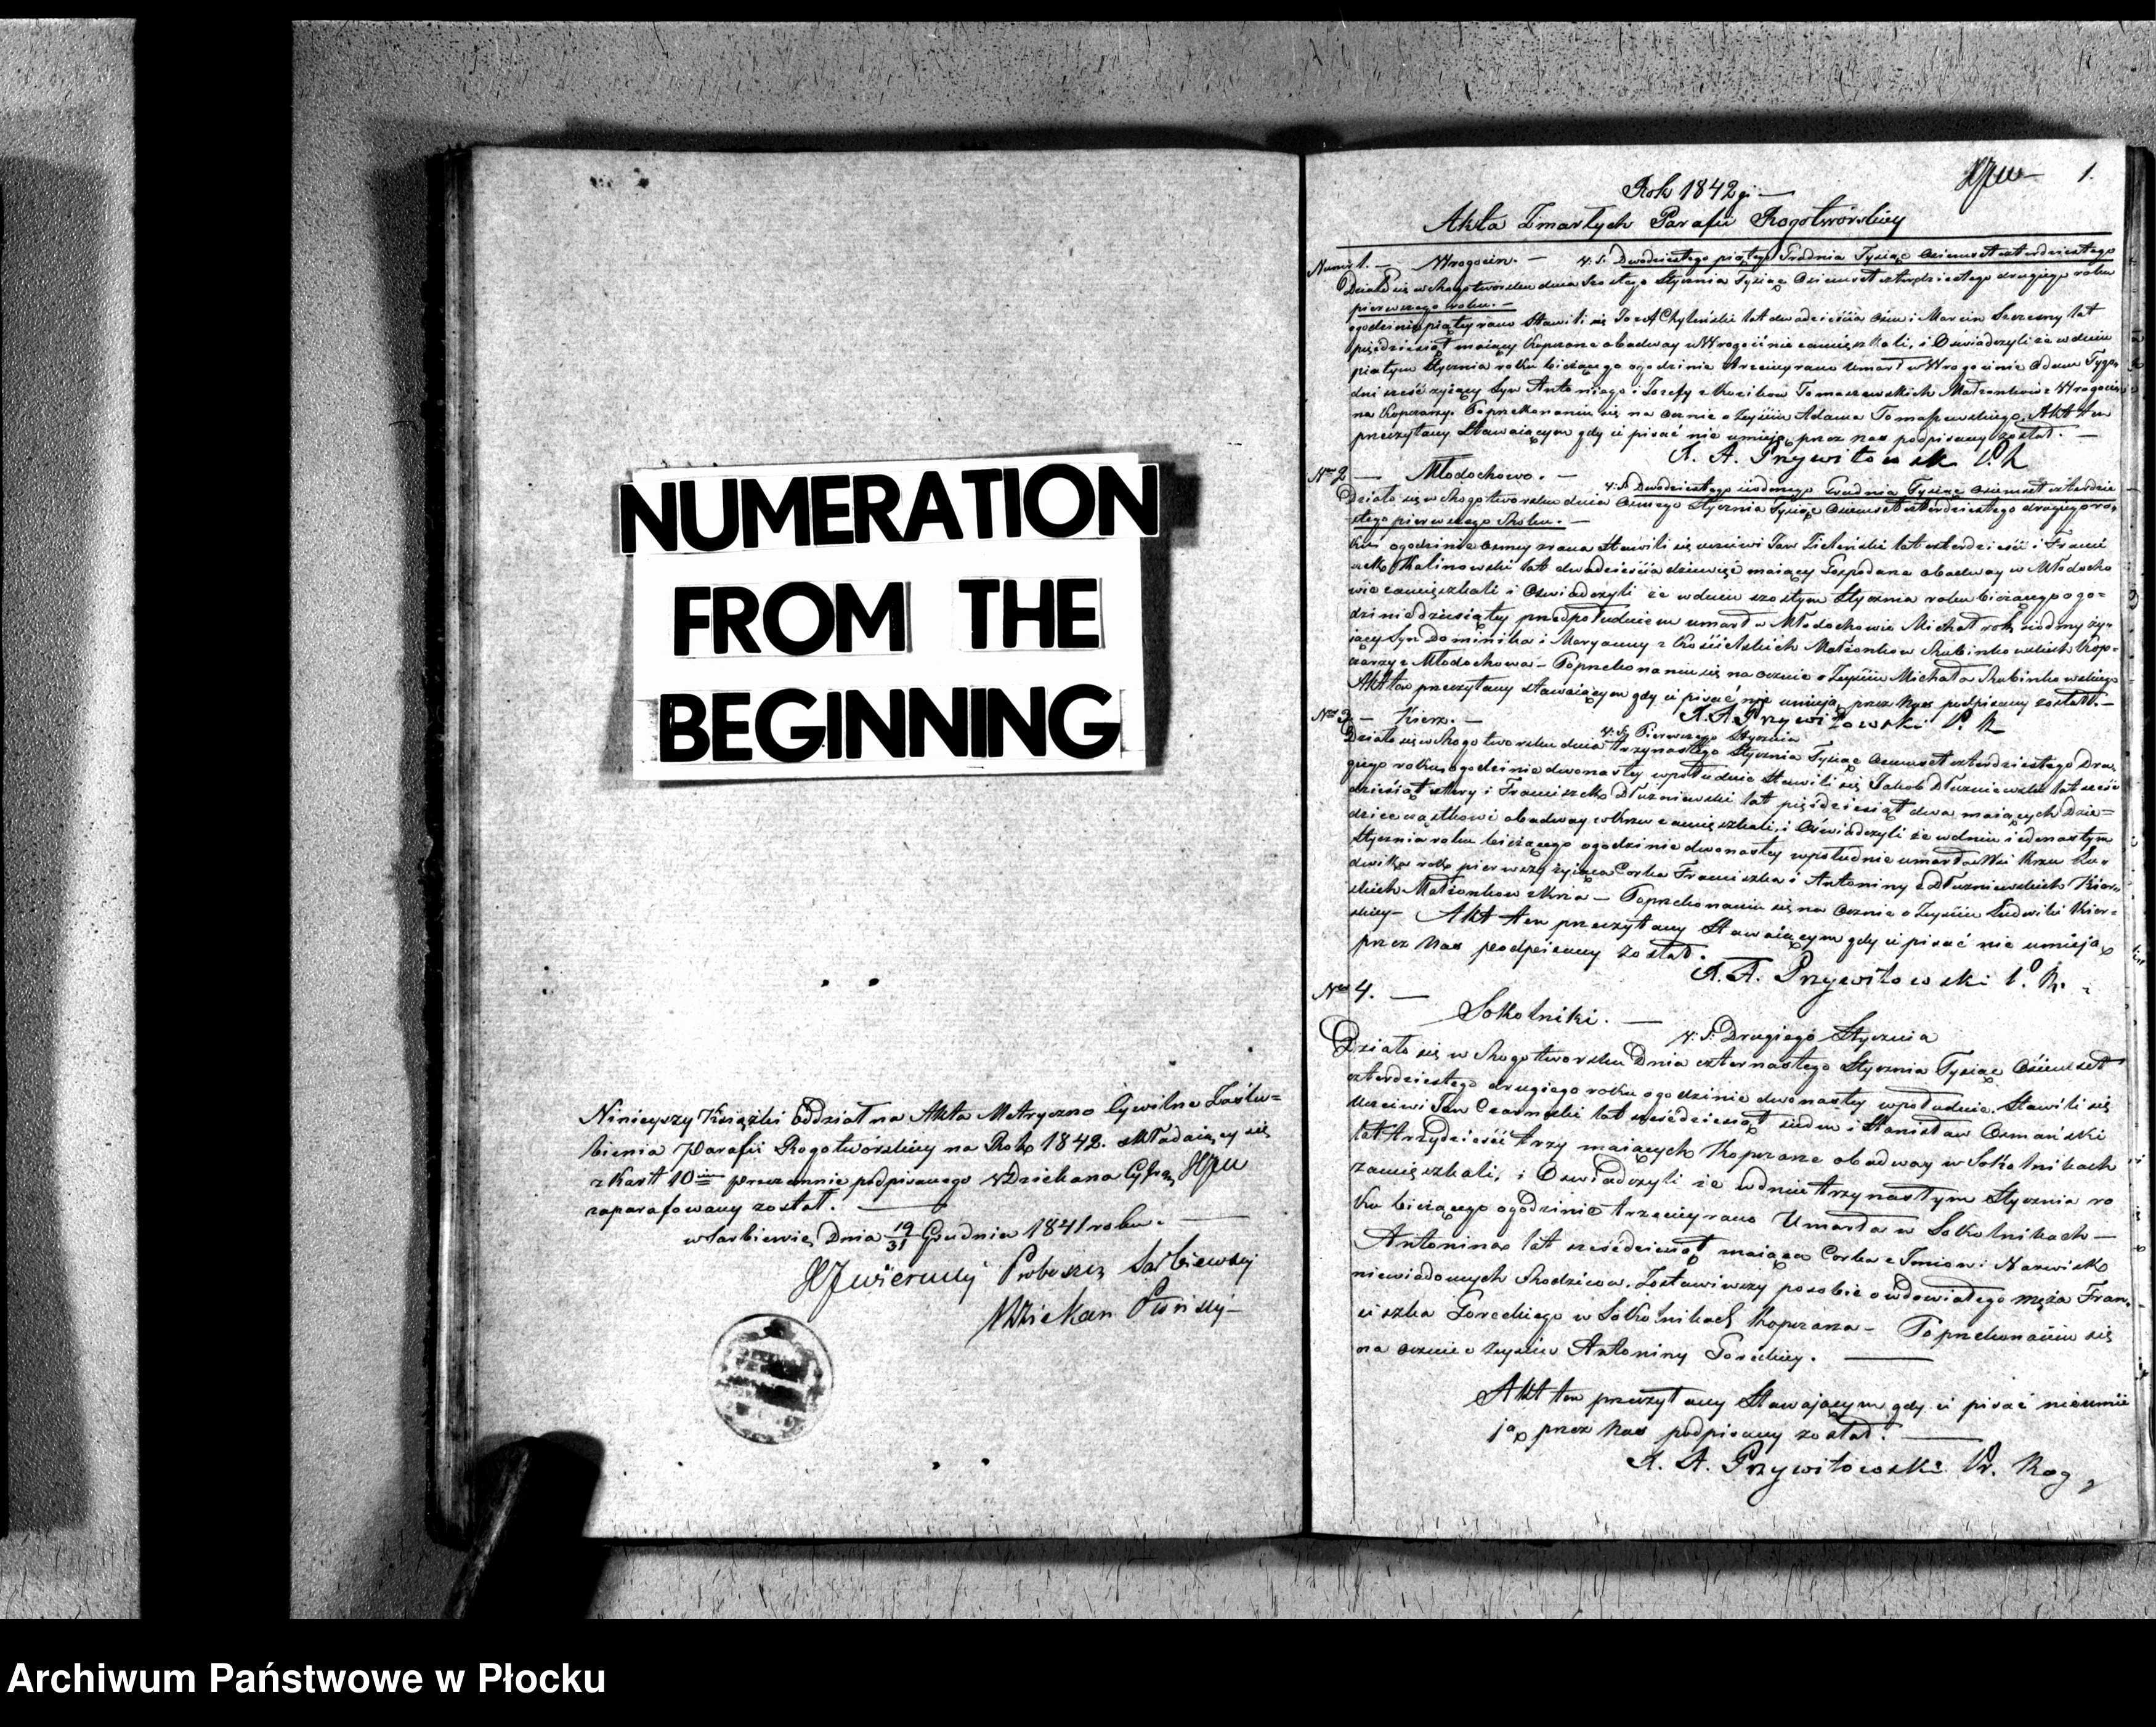 NUMERATION
FROM THE
BEGINNING
Ninieyszy Xiążki Oddział na Akta Metryczno Cywilne Zaślu=
bienia Parafii Rogotwórskiey na Rok 1842. składaiący się
z Kart 10 przezemnie podpisanego WDziekana Cyfrą
zaparafowany został. —
w Sarbiewie, Dnia 19/31 Grudnia 1841 roku. —
Proboszcz Sarbiewski
WDziekan Płoński
1.
Rok 1842 —
Akta Zmarłych Parafii Rogotworskiey
Numer 1. — Wrogocin. — v. s. Dwudziestego piątego Grudnia Tysiąc Osiemset czterdziestego
Działo się w Rogotworsku dnia Szóstego Stycznia Tysiąc Osiemset czterdziestego drugiego roku
pierwszego roku. —
ogodzinie piątey rano Stawili się Józef Chyliński lat dwadzieścia Osm i Marcin Szczesny lat
pięćdziesiąt maiący Koporze obadway w Wrogocinie zamięszkali, i Oświadczyli że w dniu
piątym Stycznia roku bieżącego ogodzinie trzeciey rano Umarł w Wrogocinie Adam Tygo,
dni sześć żyiący Syn Antoniego i Józefy z Tomaszewskich Małżonków z Wrogocina
na Koporzy. Poprzekonaniu się na ocznie o Zeyściu Adama Tomaszewskiego. Akt ten
przeczytany Stawaiącym gdy ci pisać nie umieją, przez nas podpisany został. —
X. A. Przywitowski P. R
Nro 2 — Młodochowo. — v. s. Dwudziestego siódmego Grudnia Tysiąc Osiemset czterdzie
Działo się w Rogotworsku dnia Osmego Stycznia Tysiąc Osiemset czterdziestego drugiego ro,
stego pierwszego Roku. —
ku, ogodzinie Osmey zrana Stawili się uczciwi Jan Zieleński lat czterdzieści i Franci
szek Kalinowski lat dwadzieścia dziewięć maiący Gospodarze obadway w Młodocho
wie zamięszkali i Oświadczyli że w dniu szóstym Stycznia roku bieżącego ogo=
dzinie dziesiątey przedpołudniem umarł w Młodochowie Michał rok siódmy ży,
jący Syn Dominika i Maryanny z Kościelskich Małżonków Rubinkowskich Kop=
czarzy z Młodochowa — Poprzekonaniu się na ocznie o Zeyściu Michała Rubinkowskiego
Akt ten przeczytany stawaiącym gdy ci pisać nie umieją, przez Nas podpisany został. —
X. A. Przywitowski P. R
Nro 3 — Kierz. —
v. s. Pierwszego Stycznia
Działo się w Rogotworsku dnia trzynastego Stycznia Tysiąc Osiemset czterdziestego Dru,
giego roku, ogodzinie dwonastey wpołudnie Stawili się Jakób Dłużniewski lat sześć
dziesiąt cztery i Franciszek Dłużniewski lat pięćdziesiąt dwa maiących Dzie=
dzice cząstkowi obadway w Krzu zamięszkali, i Oświadczyli że w dniu iedenastym
Stycznia roku bieżącego ogodzinie dwonastey wpołudnie umarła We Krzu Lu,
dwika rok pierwszy żyiąca Corka Franciszka i Antoniny z Dłużniewskich Kier,
skich Małżonków z Krza — Poprzekonaniu się na ocznie o Zeyściu Ludwiki Kier=
skiey — Akt ten przeczytany Stawaiącym gdy ci pisać nie umieją
przez Nas podpisany został.
X. A. Przywitowski P. R.
Nro 4. —
Sokolniki. —
v. s. Drugiego Stycznia
Działo się w Rogotworsku Dnia czternastego Stycznia Tysiąc Ośiemset
czterdziestego drugiego roku ogodzinie dwonastey wpołudnie. Stawili się
Uczciwi Jan Czarnecki lat sześćdziesiąt siedm i Stanisław Osmański
lat trzydzieści trzy maiących Koporze obadway w Sokolnikach
zamięszkali, i Oświadczyli że w dniu trzynastym Stycznia ro
ku bieżącego ogodzinie trzeciey rano Umarła w Sokolnikach —
Antonina lat sześćdziesiąt maiąca Corka z Imion i Nazwisk
niewiadomych Rodziców. Zostawiwszy posobie owdowiałego męża Fran,
ciszka Goreckiego w Sokolnikach Koporza — Poprzekonaniu się
na ocznie o Zeyściu Antoniny Goreckiey. —
Akt ten przeczytany Stawającym gdy ci pisać nie umie
ją przez Nas podpisany został. —
X. A. Przywitowski Pr. Rog
Archiwum Państwowe w Płocku